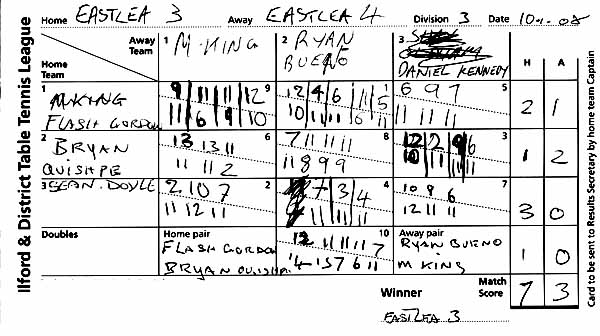 Ilford & District Table Tennis League
Home EASTLEA 3 Away EASTLEA 4 Division 3 Date
Away Team
Home Team
1 M·KING
2 RYAN BUENO
3 DANIEL KENNEDY
H A
1 M KING
FLASH GORDON
9 11 11 11 12 9
11 6 9 10
12 4 6 11 5 1
10 11 11 10 11
6 9 7 5
11 11 11
2 1
2 BRYAN
QUISHPE
13 13 11 6
11 11 2
7 11 11 11 8
11 8 9 9
12 12 9 6 3
10 11 11
1 2
3 SEAN·DOYLE
2 10 7 2
11 12 11
7 3 4 4
11 11 11
10 9 6 7
12 11 11
3 0
Doubles
Home pair
FLASH GORDON
BRYAN QUISHPE
12 11 11 11 7 10
13 7 6 11
Away pair
RYAN BUENO
M KING
1 0
Winner
EASTLEA 3
Match Score
7 3
Card to be sent to Results Secretary by home team Captain